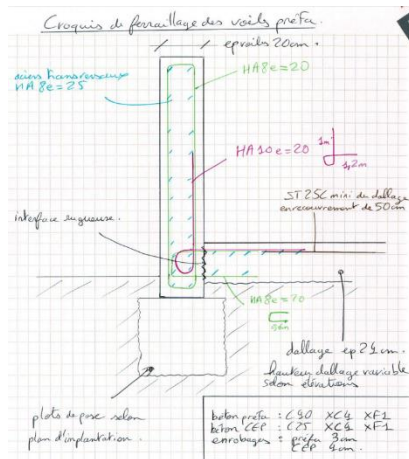 Croquis de ferraillage des voiles préfa.
ep voiles 20cm.
aciers transversaux
HA8 e=25
HA8 e=20
HA10 e=20
1m
1,2m
ST25C mini du dallage
en recouvrement de 50cm
interface rugueuse.
HA8 e=20
dallage ep 21cm.
hauteur dallage variable
selon élévations
plots de pose selon
plan d'implantation.
béton préfa : C40 XC4 XF1
béton CEP : C25 XC4 XF1
enrobages : préfa 3cm
CEP 4cm.